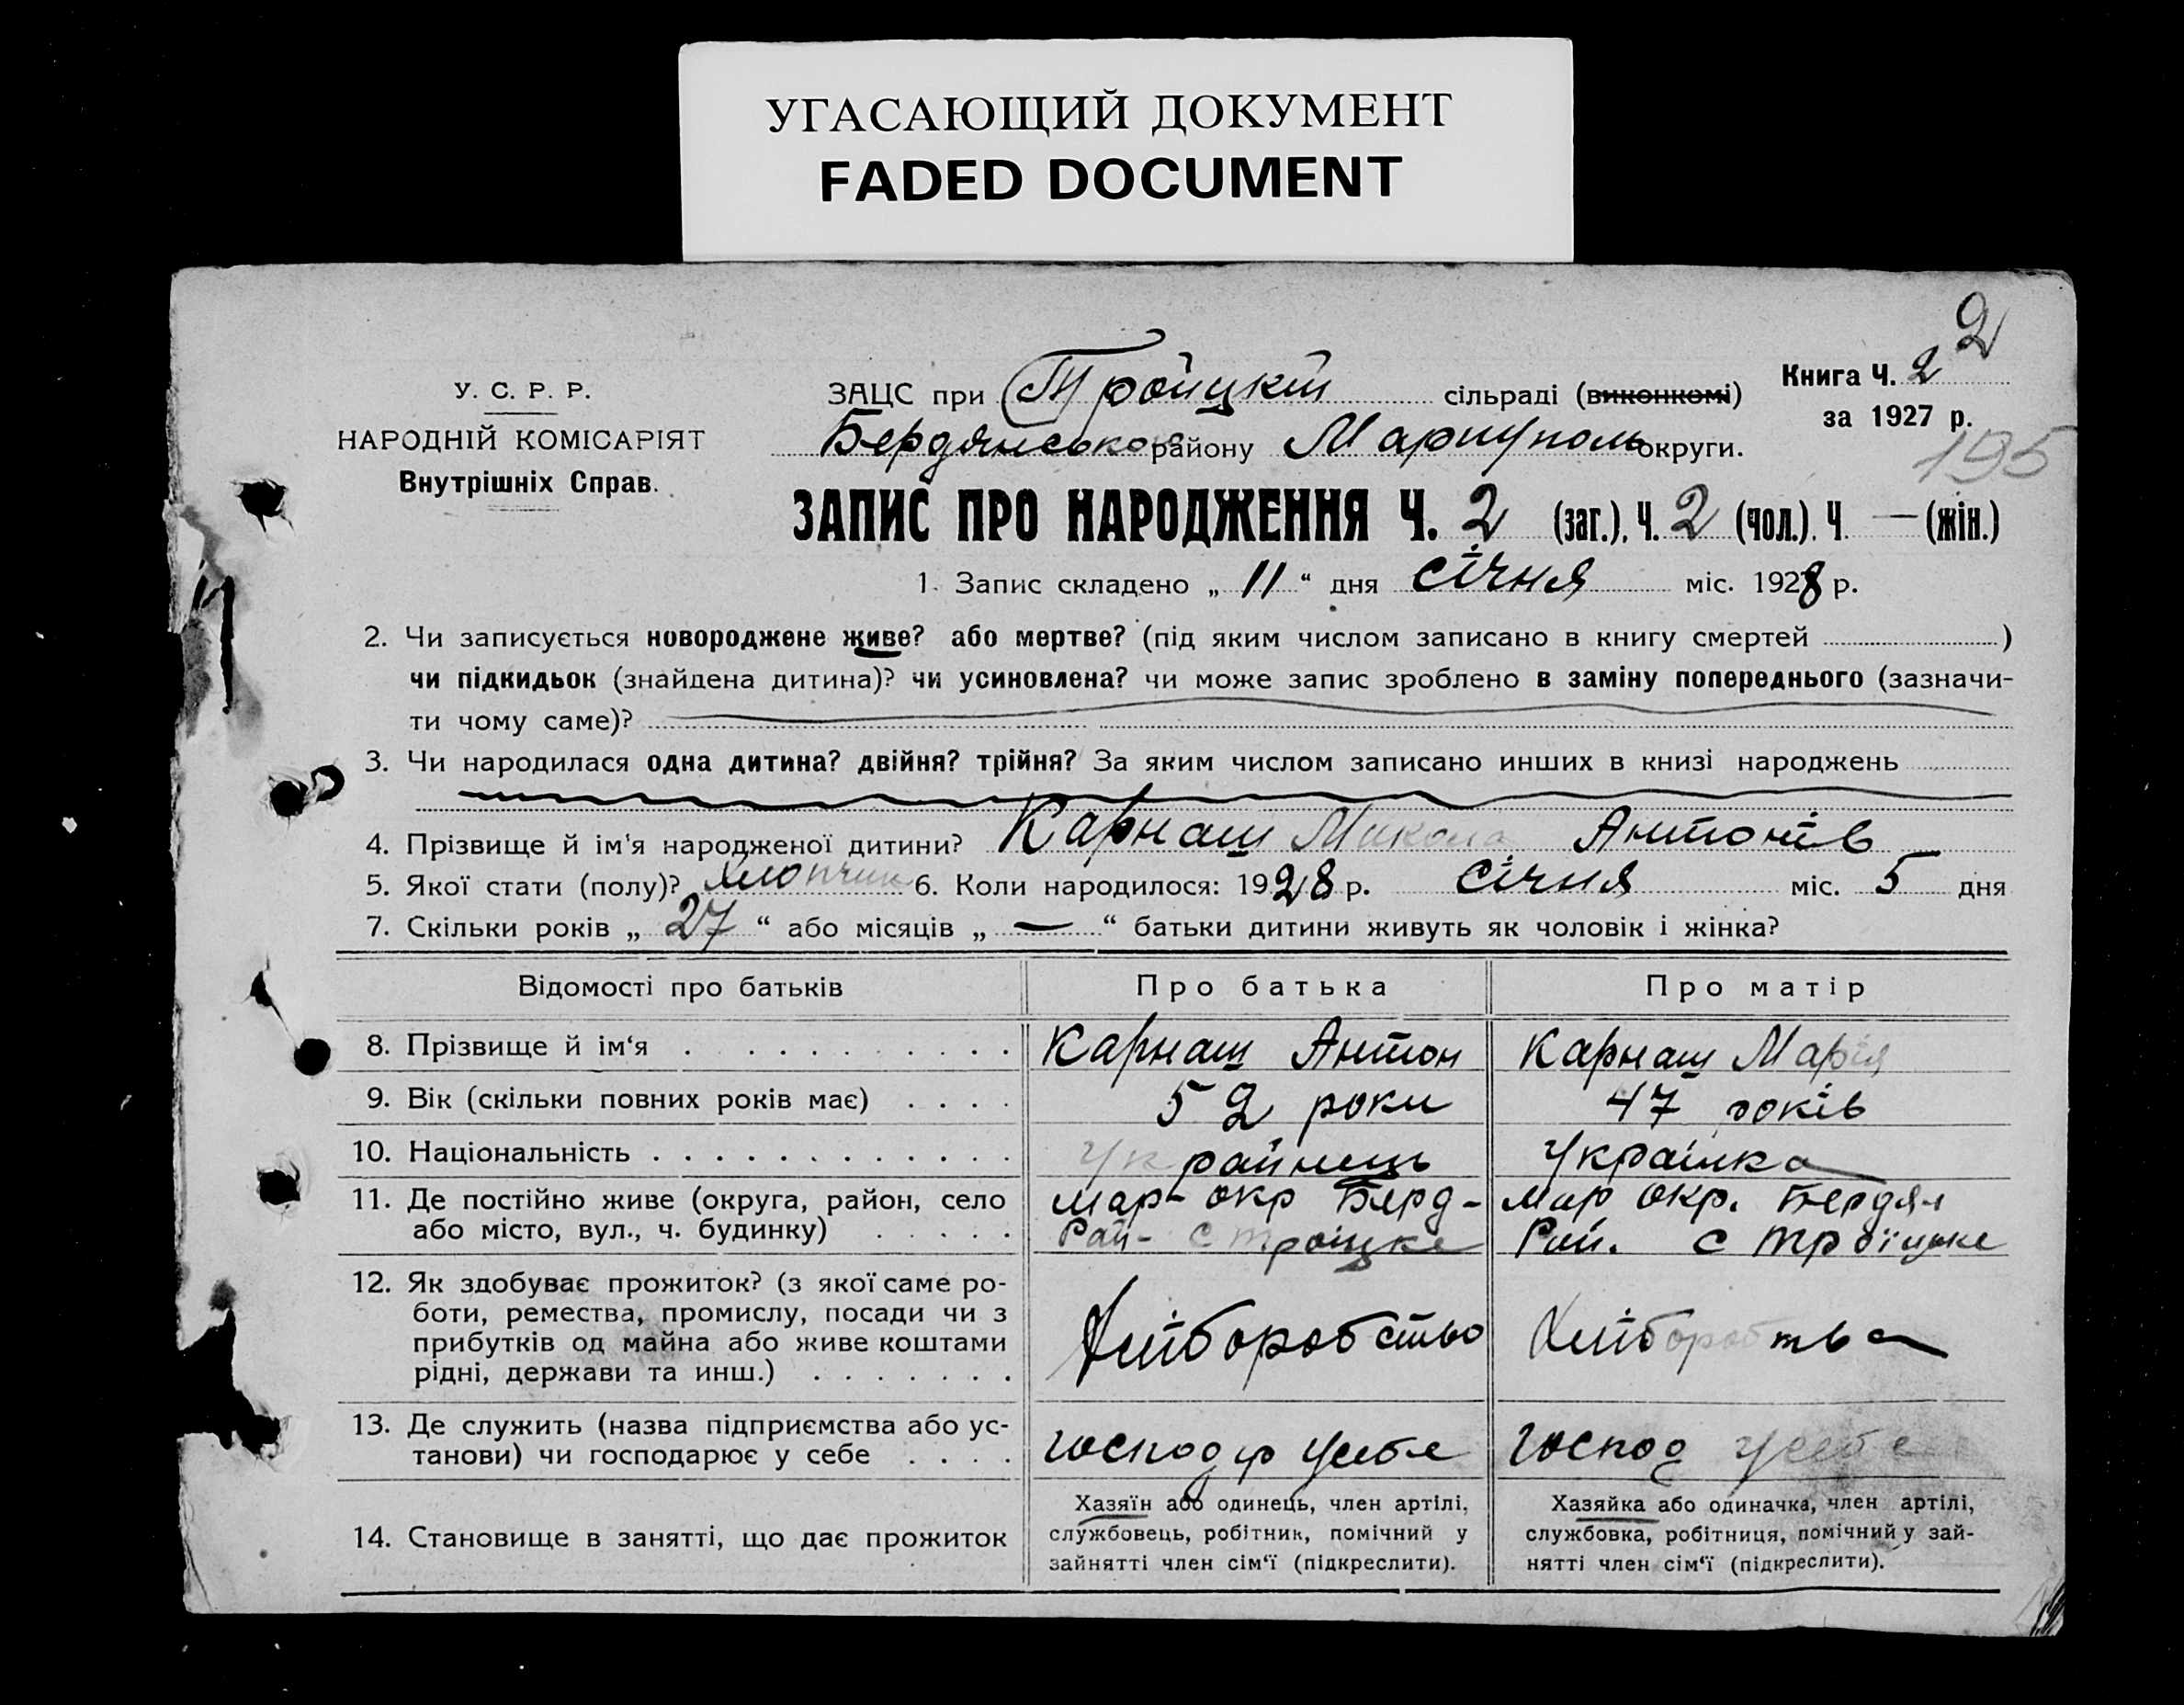 УГАСАЮЩИЙ ДОКУМЕНТ
FADED DOCUMENT
2
У. С. Р. Р.
НАРОДНІЙ КОМІСАРІЯТ
Внутрішніх Справ.
Книга Ч. 2
за 1927 р.
195
ЗАЦС при Тройцкій сільраді (виконкомі)
Бердянсько району Маріуполь округи.
ЗАПИС ПРО НАРОДЖЕННЯ Ч. 2 (заг.), Ч. 2 (чол.). Ч. — (жін.)
1. Запис складено „ 11 “ дня січня міс. 1928 р.
2. Чи записується новороджене живе? або мертве? (під яким числом записано в книгу смертей )
чи підкидьок (знайдена дитина)? чи усиновлена? чи може запис зроблено в заміну попереднього (зазначи-
ти чому саме)?
3. Чи народилася одна дитина? двійня? трійня? За яким числом записано инших в книзі народжень
4. Прізвище й ім'я народженої дитини? Карнаш Микола Антонів
5. Якої стати (полу)? Хлопчик 6. Коли народилося: 1928 р. січня міс. 5 дня
7. Скільки років „ 27 “ або місяців „ — “ батьки дитини живуть як чоловік і жінка?
Відомості про батьків Про батька Про матір
8. Прізвище й ім'я Карнаш Антон Карнаш Марія
9. Вік (скільки повних років має) 52 роки 47 років
10. Національність Украйнець Украінка
11. Де постійно живе (округа, район, село мар- окр Берд- мар окр. Бердян
або місто, вул., ч. будинку) Рай- с троїцке Рай. с троїцьке
12. Як здобуває прожиток? (з якої саме ро-
боти, ремества, промислу, посади чи з
прибутків од майна або живе коштами
рідні, держави та инш.) Хліборобство Хліборобтва
13. Де служить (назва підприємства або ус-
танови) чи господарює у себе господар усебе господ усебе
14. Становище в занятті, що дає прожиток
Хазяїн або одинець, член артілі,
службовець, робітник, помічний у
зайнятті член сім'ї (підкреслити).
Хазяйка або одиначка, член артілі,
службовка, робітниця, помічний у зай-
нятті член сім'ї (підкреслити).